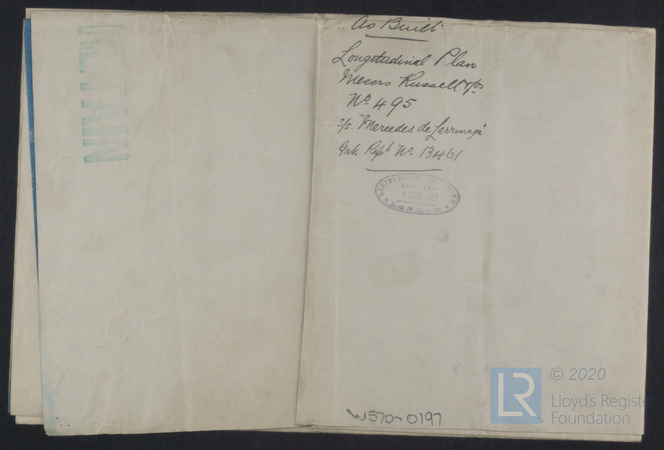 RETAIN
As Built
Longitudinal Plan
Messrs Russell & Co
No. 495
S/S "Mercedes de Larrinaga"
Grk Rept No. 13461
W570-0197
LR
© 2020
Lloyd's Registe
Foundation